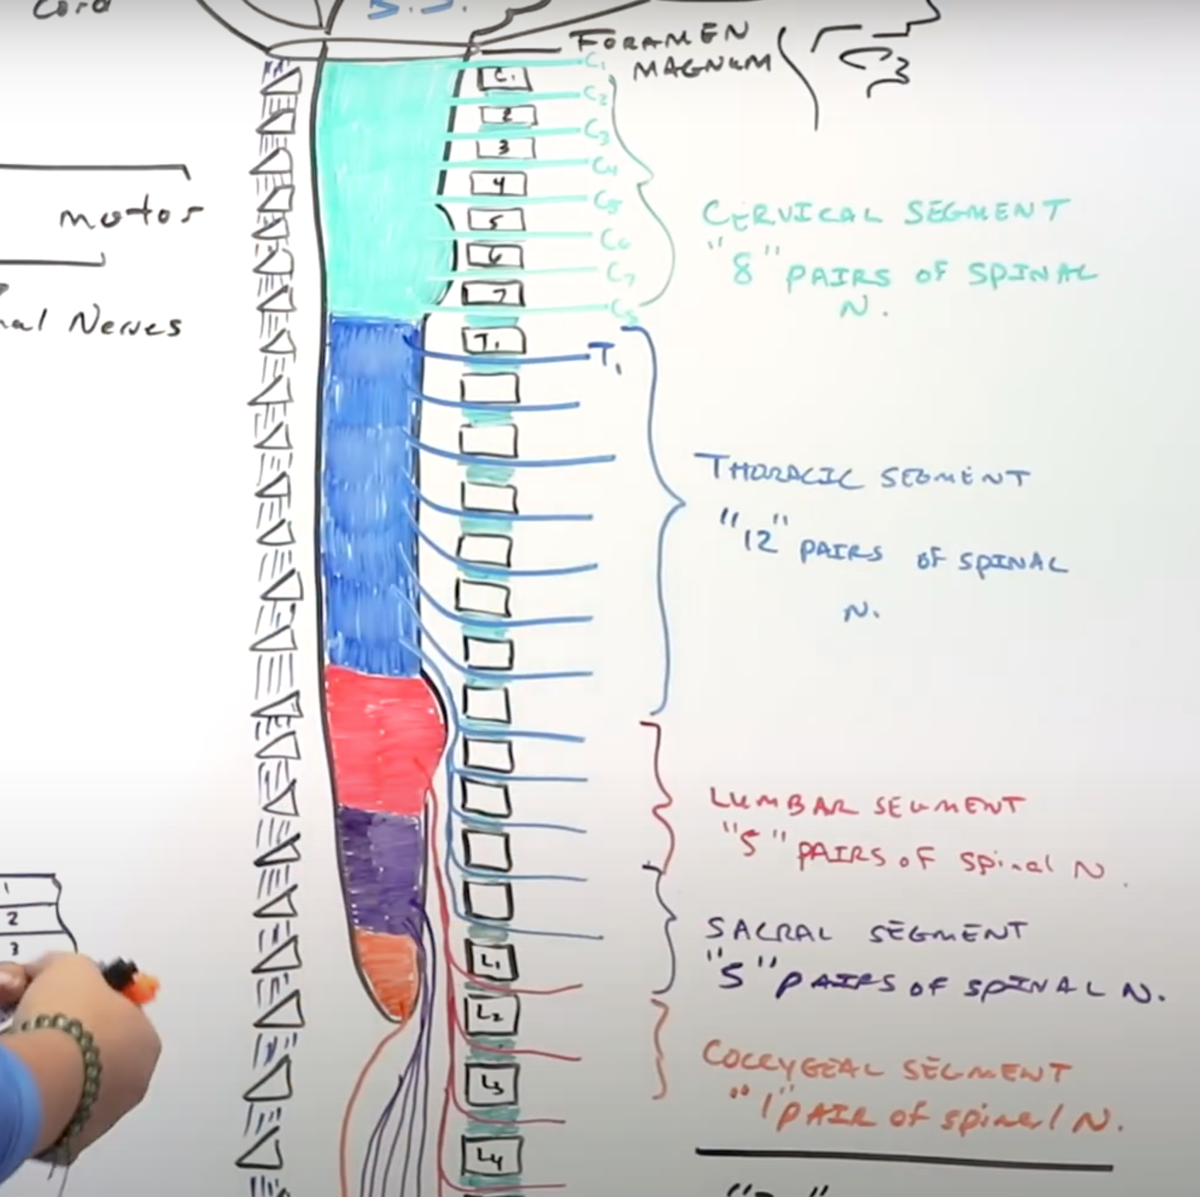 Cord
S.S.
FORAMEN
MAGNUM
C3
C1
C2
C3
C4
C5
C6
C7
C8
C1
2
3
4
5
6
7
T1
T1
motor
Nerves
CERVICAL SEGMENT
"8" PAIRS OF SPINAL
N.
THORACIC SEGMENT
"12" PAIRS OF SPINAL
N.
LUMBAR SEGMENT
"5" PAIRS OF Spinal N.
SACRAL SEGMENT
"5" PAIRS OF SPINAL N.
COCCYGEAL SEGMENT
"1" PAIR OF spinal N.
L1
L2
L3
L4
1
2
3